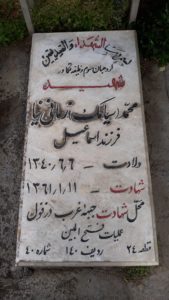 الشهداء والصدیقین
شهید
محمد سیامک زمانی نیا
فرزند اسماعیل
ولادت - ۱۳۴۰/۶/۶
شهادت - ۱۳۶۱/۱/۱۱
محل شهادت جبهه غرب دزفول
عملیات فتح المبین
قطعه ۲۴ ردیف ۱۴۰ شماره ۴۰